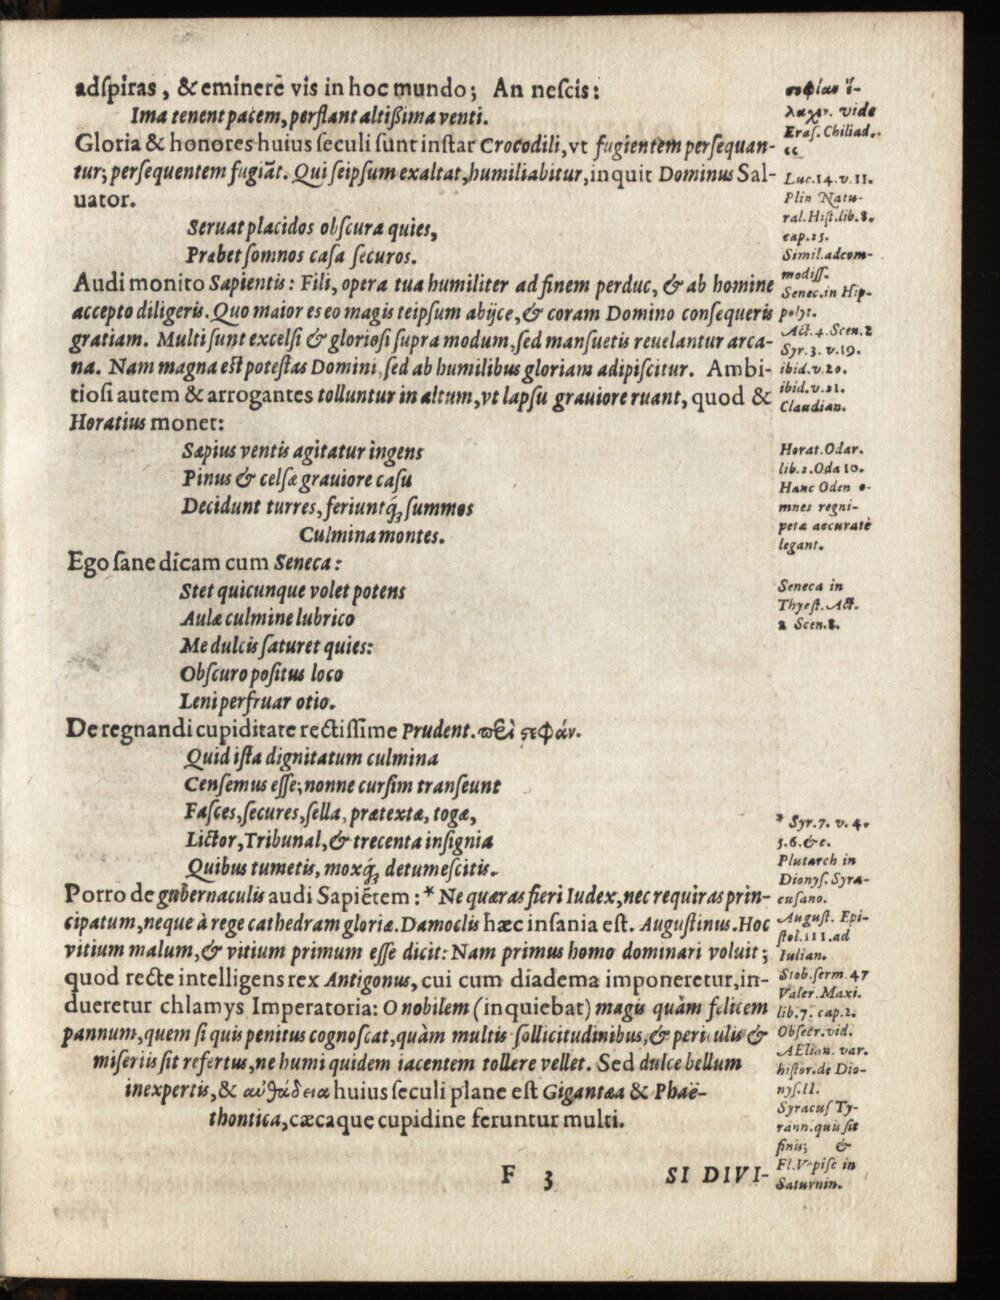 adſpiras, & eminerē vis in hoc mundo; An neſcis:
Ima tenent pacem, perflant altißima venti.
Gloria & honores huius ſeculi ſunt inſtar Crocodili, vt fugientem perſequan-
tur; perſequentem fugiāt. Qui ſeipſum exaltat, humiliabitur, inquit Dominus Sal-
uator.
Seruat placidos obſcura quies,
Præbet ſomnos caſa ſecuros.
Audi monito Sapientis: Fili, opera tua humiliter ad finem perduc, & ab homine
accepto diligeris. Quo maior es eo magis teipſum abijce, & coram Domino conſequeris
gratiam. Multi ſunt excelſi & glorioſi ſupra modum, ſed manſuetis reuelantur arca-
na. Nam magna eſt poteſtas Domini, ſed ab humilibus gloriam adipiſcitur. Ambi-
tioſi autem & arrogantes tolluntur in altum, vt lapſu grauiore ruant, quod &
Horatius monet:
Sæpius ventis agitatur ingens
Pinus & celſæ grauiore caſu
Decidunt turres, feriuntq́; ſummos
Culmina montes.
Ego ſane dicam cum Seneca:
Stet quicunque volet potens
Aulæ culmine lubrico
Me dulcis ſaturet quies:
Obſcuro poſitus loco
Leni perfruar otio.
De regnandi cupiditate rectiſſime Prudent. περὶ ςεφάν.
Quid iſta dignitatum culmina
Cenſemus eſſe; nonne curſim tranſeunt
Faſces, ſecures, ſella, prætextæ, togæ,
Lictor, Tribunal, & trecenta inſignia
Quibus tumetis, moxq́; detumeſcitis.
Porro de gubernaculis audi Sapiētem: * Ne quæras fieri Iudex, nec requiras prin-
cipatum, neque à rege cathedram gloriæ. Damoclis hæc inſania eſt. Auguſtinus. Hoc
vitium malum, & vitium primum eſſe dicit: Nam primus homo dominari voluit;
quod recte intelligens rex Antigonus, cui cum diadema imponeretur, in-
dueretur chlamys Imperatoria: O nobilem (inquiebat) magis quàm felicem
pannum, quem ſi quis penitus cognoſcat, quàm multis ſollicitudinibus, & periculis &
miſeriis ſit refertus, ne humi quidem iacentem tollere vellet. Sed dulce bellum
inexpertis, & αὐθάδεια huius ſeculi plane eſt Gigantæa & Phaë-
thontica, cæcaque cupidine feruntur multi.
F 3 SI DIVI-
σοφίαν ἔ-
λαχιν. vide
Eraſ. Chiliad.
Luc. 14. v. 11.
Plin Natu-
ral. Hiſt. lib. 8.
cap. 25.
Simil. adcom-
modiſſ.
Senec. in Hip-
polyt.
Act. 4. Scen. 2
Syr. 3. v. 19.
ibid. v. 20.
ibid. v. 21.
Claudian.
Horat. Odar.
lib. 2. Oda 10.
Hanc Oden o-
mnes regni-
petæ accuratè
legant.
Seneca in
Thyeſt. Act.
2 Scen. 8.
* Syr. 7. v. 4.
5. 6. &c.
Plutarch in
Dionyſ. Syra-
cuſano.
Auguſt. Epi-
ſtol. 111. ad
Iulian.
Stob. ſerm. 47
Valer. Maxi.
lib. 7. cap. 2.
Obſeer. vid.
AElian. var.
hiſtor. de Dio-
nyſ. II.
Syracuſ Ty-
rann. quis ſit
finis; &
Fl. Vopiſc in
Saturnin.